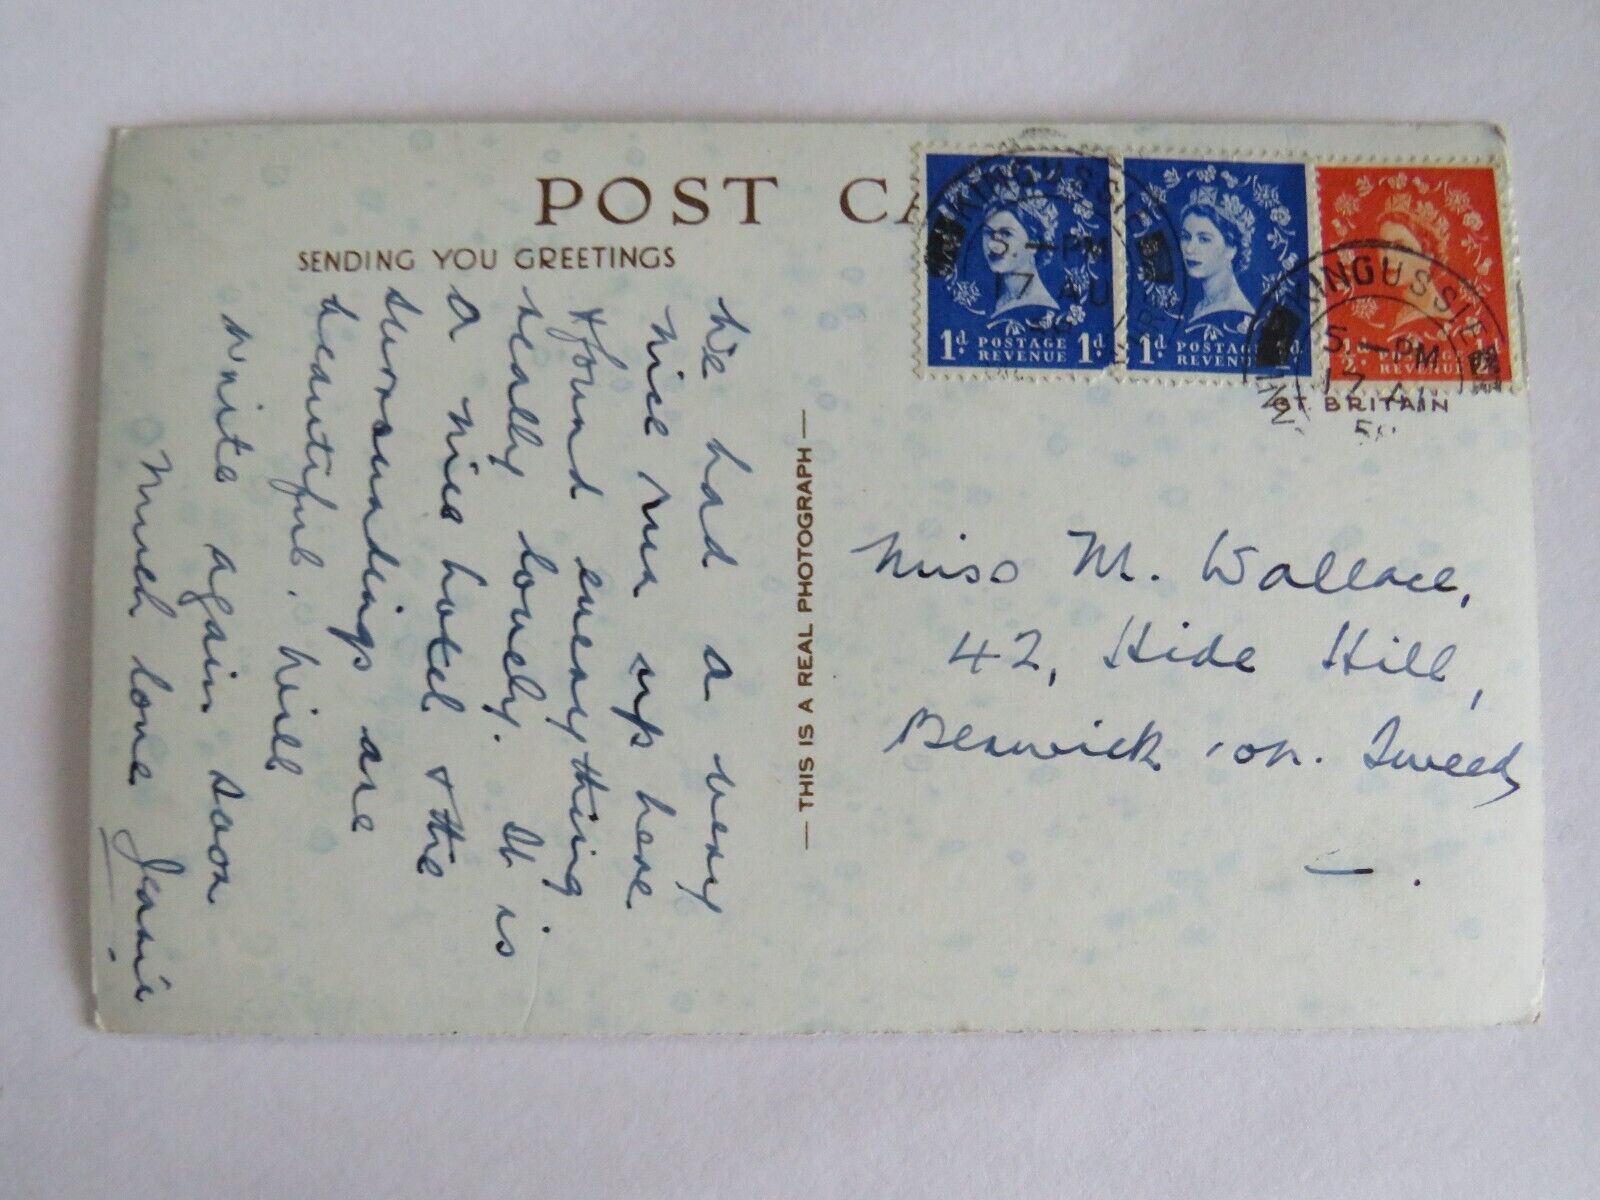 POST CA
SENDING YOU GREETINGS
We had a very
nice run up here
& found everything
really lovely. It is
a nice hotel & the
surroundings are
beautiful. Will
write again soon
Much love Jessie.
— THIS IS A REAL PHOTOGRAPH —
KINGUSSIE
5. — PM
17 AU
56
1d. POSTAGE REVENUE 1d.
1d. POSTAGE REVENUE
KINGUSSIE
5. — PM
17 AU
REVENUE
GT. BRITAIN
Miss M. Wallace,
42, Hide Hill,
Berwick-on-Tweed